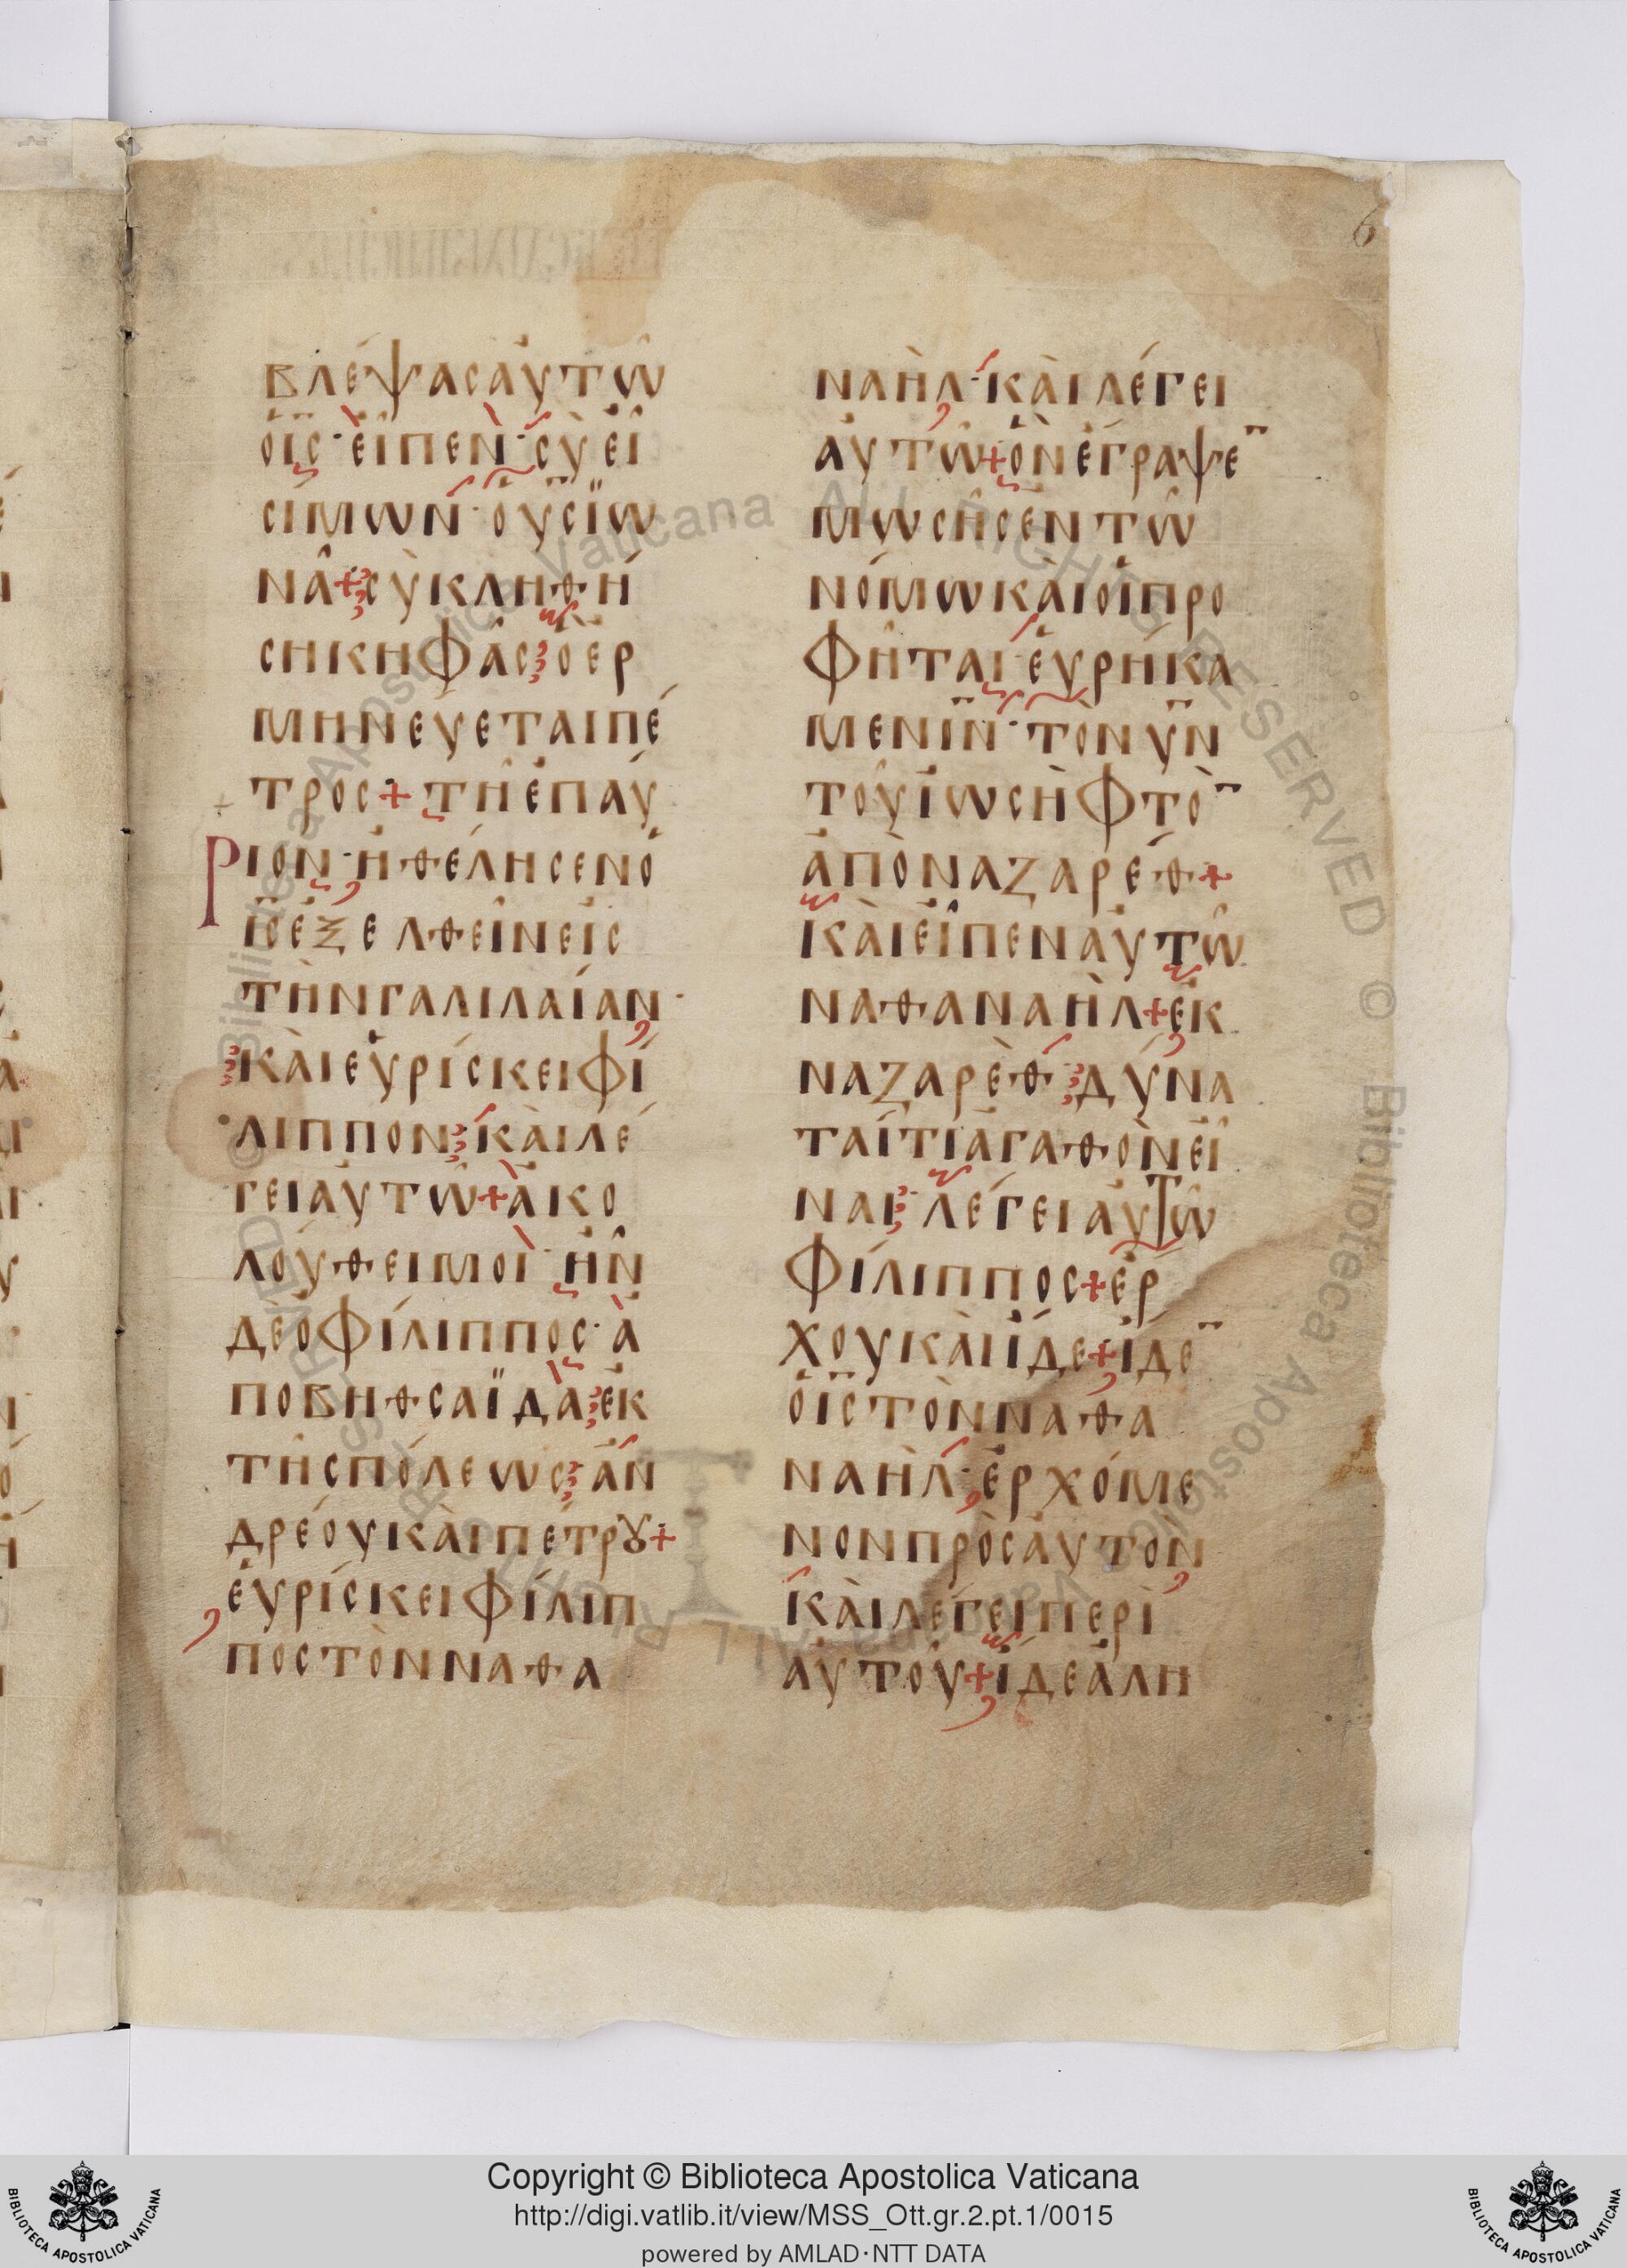 6
ΒΛΈΨΑϹΑΥ̓ΤΩ͂
Ὁ ΙϹ · ΕἾΠΕΝ · ϹῪ ΕἾ
ϹΊΜΩΝ · Ὁ ΥϹ ΪΩ
ΝΑ͂ + ϹῪ ΚΛΗΘΉ
ϹΗ ΚΗΦΑ͂Ϲ Ὁ ἙΡ
ΜΗΝΕΥΕΤΑΙ ΠΈ
ΤΡΟϹ + ΤΗ͂ ἘΠΑΎ
ΡΙΟΝ · ἨΘΈΛΗϹΕΝ Ὁ
ΙϹ ἘΞΕΛΘΕΙ͂Ν ΕἸϹ
ΤῊΝ ΓΑΛΙΛΑΊΑΝ ·
ΚΑῚ ΕὙΡΊϹΚΕΙ ΦΊ
ΛΙΠΠΟΝ ΚΑῚ ΛΈ
ΓΕΙ ΑΥ̓ΤΩ͂ + ἈΚΟ
ΛΟΎΘΕΙ ΜΟΙ · ἮΝ
ΔΕ Ὁ ΦΊΛΙΠΠΟϹ · Ἀ
ΠΟ ΒΗΘϹΑΪΔᾺ ἘΚ
ΤΗ͂Ϲ ΠΌΛΕΩϹ ἈΝ
ΔΡΈΟΥ ΚΑῚ ΠΈΤΡȢ +
ΕὙΡΊϹΚΕΙ ΦΊΛΙΠ
ΠΟϹ ΤῸΝ ΝΑΘΑ
ΝΑῊΛ · ΚΑῚ ΛΈΓΕΙ
ΑΥ̓ΤΩ͂ + ὋΝ ἜΓΡΑΨΕ¯
ΜΩϹΗ͂Ϲ ἘΝ ΤΩ͂
ΝΌΜΩ ΚΑῚ ΟἹ ΠΡΟ
ΦΗ͂ΤΑΙ · ΕὙΡΉΚΑ
ΜΕΝ ΙΝ · ΤῸΝ ΥΝ
ΤΟΥ͂ ἸΩϹῊΦ ΤῸ¯
ἈΠῸ ΝΑΖΑΡΈΘ +
ΚΑῚ ΕἾΠΕΝ ΑΥ̓ΤΩ͂
ΝΑΘΑΝΑῊΛ + ἘΚ
ΝΑΖΑΡῈΘ ΔΎΝΑ
ΤΑΊ ΤΙ ἈΓΑΘῸΝ ΕἾ
ΝΑΙ · ΛΈΓΕΙ ΑΥ̓ΤΩ͂
ΦΊΛΙΠΠΟϹ + ἜΡ
ΧΟΥ ΚΑῚ ἼΔΕ + ἼΔΕ¯
Ὁ ΙϹ ΤῸΝ ΝΑΘΑ
ΝΑῊΛ · ἘΡΧΌΜΕ
ΝΟΝ ΠΡῸϹ ΑΥ̓ΤῸΝ
ΚΑῚ ΛΈΓΕΙ ΠΕΡῚ
ΑΥ̓ΤΟΥ͂ + ἼΔΕ ἈΛΗ
© Biblioteca Apostolica Vaticana ALL RIGHTS RESERVED © Biblioteca Apostolica Vaticana ALL RIGHTS RESERVED
BIBLIOTECA APOSTOLICA VATICANA
Copyright © Biblioteca Apostolica Vaticana
http://digi.vatlib.it/view/MSS_Ott.gr.2.pt.1/0015
powered by AMLAD·NTT DATA
BIBLIOTECA APOSTOLICA VATICANA